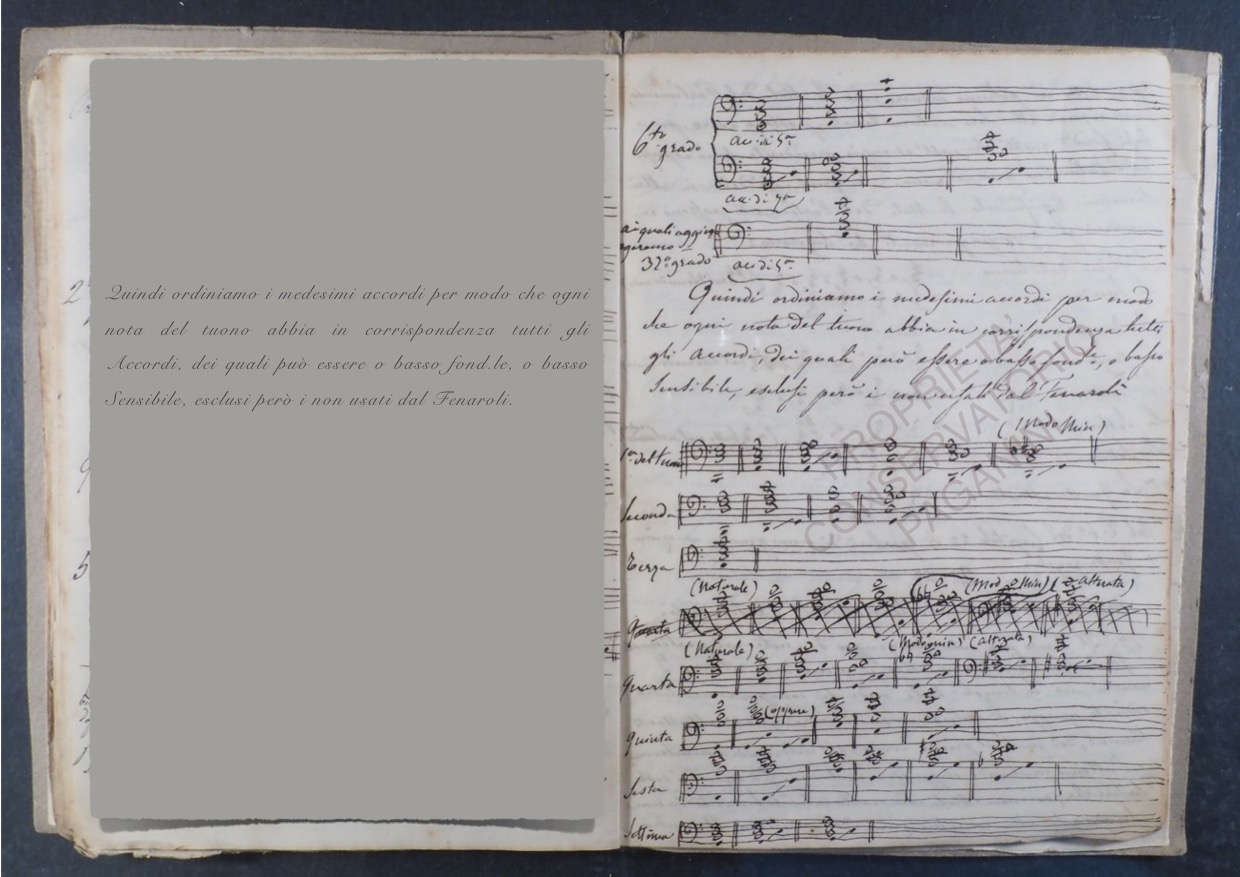 Quindi ordiniamo i medesimi accordi per modo che ogni
nota del tuono abbia in corrispondenza tutti gli
Accordi, dei quali può essere o basso fond.le, o basso
Sensibile, esclusi però i non usati dal Fenaroli.
6to grado
acc. di 5a
acc. di 7a
ai quali aggiun
geremo
3zo grado
acc. di 5a
Quindi ordiniamo i medesimi accordi per modo
che ogni nota del tuono abbia in corrispondenza tutti
gli Accordi, dei quali può essere o basso fond.le, o basso
Sensibile, esclusi però i non usati dal Fenaroli
PROPRIETA'
CONSERVATORIO
PAGANINI
(Modo Min)
1a del tuono
Seconda
Terza
(Naturale) (Modo Min) (alterata)
Quarta
(Naturale) (Modo min) (alterata)
Quarta
(oppure)
Quinta
Sesta
Settima